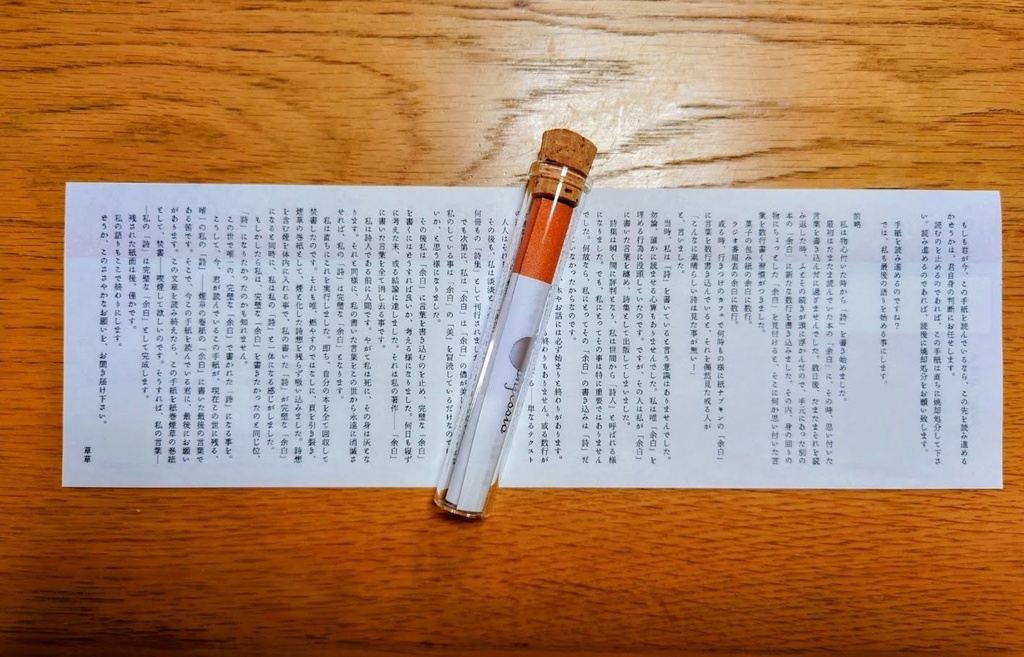 もしも君が今、この手紙を読んでいるなら、この先を読み進める
かどうかは、君自身の判断にお任せします。
読むのを止めるのであれば、この手紙は直ちに焼却処分して下さ
い。読み進めるのであれば、読後に焼却処分をお願い致します。
手紙を読み進めるのですね？
では、私も最後の語りを始める事にします。
前略
私は物心の付いた時から「詩」を書き始めました。
最初はたまたま読んでいた本の「余白」に、その時、思い付いた
言葉を書き込んだに過ぎませんでした。数日後、たまたまそれを読
み返した時、ふとその続きが頭に浮かんだので、手元にあった別の
本の「余白」に新たな数行を書き込みました。その内、身の回りの
物にちょっとした「余白」を見付けると、そこに何か思い付いた言
葉を数行書く習慣がつきました。
菓子の包み紙の余白に数行。
ラジオ番組表の余白に数行。
或る時、行きつけのカフェで何時もの様に紙ナプキンの「余白」
に言葉を数行書き込んでいると、それを偶然見た或る人が
「こんなに素晴らしい詩は見た事が無い！」
と、言いました。
当時、私は「詩」を書いていると言う意識はありませんでした。
勿論、誰かに読ませる心算もありませんでした。私は唯「余白」を
埋める行為に没頭していたのです。ですが、その人は私が「余白」
に書いた言葉を纏め、詩集として出版してしまいました。
詩集は瞬く間に評判となり、私は世間から「詩人」と呼ばれる様
になりました。でも、私にとってその事は特に重要ではありません
でした。何故なら、私にとってその「余白」の書き込みは「詩」だ
なかったからなのです。
本やお話には必ず始まりと終わりがあります。
終わりもありません。或る数行が
単なるテクスト
人人は私の
その後も、私は淡淡と
何冊もの「詩集」として刊行されました
でも次第に、私は「余白」は「余白」の儘が美
私のしている事は「余白」の「美」を冒涜しているだけなのでは
いか、と思う様になりました。
その後私は「余白」に言葉を書き込むのを止め、完璧な「余白」
を書くにはどうすれば良いか、考える様になりました。何日も寝ず
に考えた末、或る結論に達しました。それは私の著作――「余白」
に書いた言葉を全て消し去る事です。
私は詩人である前に人間です。やがて私は死に、その身は灰とな
ります。それと同様に、私の書いた言葉をこの世から永遠に消滅さ
せれば、私の「詩」は完璧な「余白」となります。
私は直ちにこれを実行しました。即ち、自分の本を全て回収して
焚書したのです。それも唯、燃やすのではなしに、頁を引き裂き、
煙草の巻紙として、煙と化した詩想を残らず吸い込みました。詩想
を含む煙を体内に入れる事で、私の書いた「詩」が完璧な「余白」
になると同時に、私は私の「詩」と一体になる感じがしました。
もしかしたら私は、完璧な「余白」を書きたかったのと同じ位、
「詩」になりたかったのかも知れません。
この世で唯一の、完璧な「余白」で書かれた「詩」になる事を。
こうして、今、君が読んでいるこの手紙が、現在この世に残る、
唯一の私の「詩」――煙草の巻紙の「余白」に書いた最後の言葉で
ある筈です。そこで、今この手紙を読んでいる君に、最後にお願い
があります。この文章を読み終えたら、この手紙を紙巻煙草の巻紙
として、焚書――喫煙して欲しいのです。そうすれば、私の言葉―
―私の「詩」は完璧な「余白」として完成します。
残された紙面は後、僅かです。
私の語りもここで終わりにします。
どうか、このささやかなお願いを、お聞き届け下さい。
草草